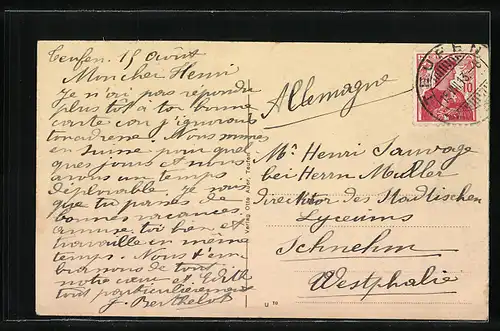 Teufen. 15 Août
Mon cher Henri
Je n'ai pas répondre
plus tôt à ta bonne
carte car j'ignorais
ton adresse. Nous sommes
en Suisse pour quel
ques jours et nous
avons un temps
déplorable. Je vous
que tu passes de
bonnes vacances
amuse toi bien et
travaille en même
temps. Nous t'em
brassons de tout
notre cœur et Edith
tout particulièrement
J. Berthelot
Allemagne
Mr Henri Sauvage
bei Herrn Müller
Direktor des Städtischen
Lyceums
Schnehm
Westphalie
Verlag Otto Teufen
TEUFEN
10
U 10